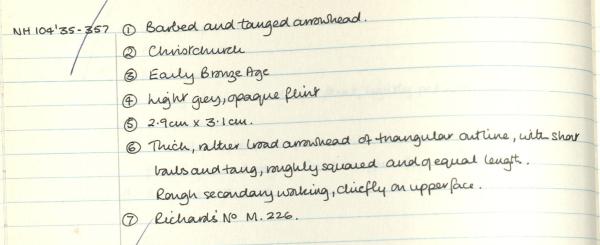 NH 104'35-357 ① Barbed and tanged arrowhead.
② Christchurch
③ Early Bronze Age
④ Light grey, opaque flint
⑤ 2.9cm x 3.1cm.
⑥ Thick, rather broad arrowhead of triangular outline, with short
barbs and tang, roughly squared and of equal length.
Rough secondary working, chiefly on upper face.
⑦ Richards' No M.226.